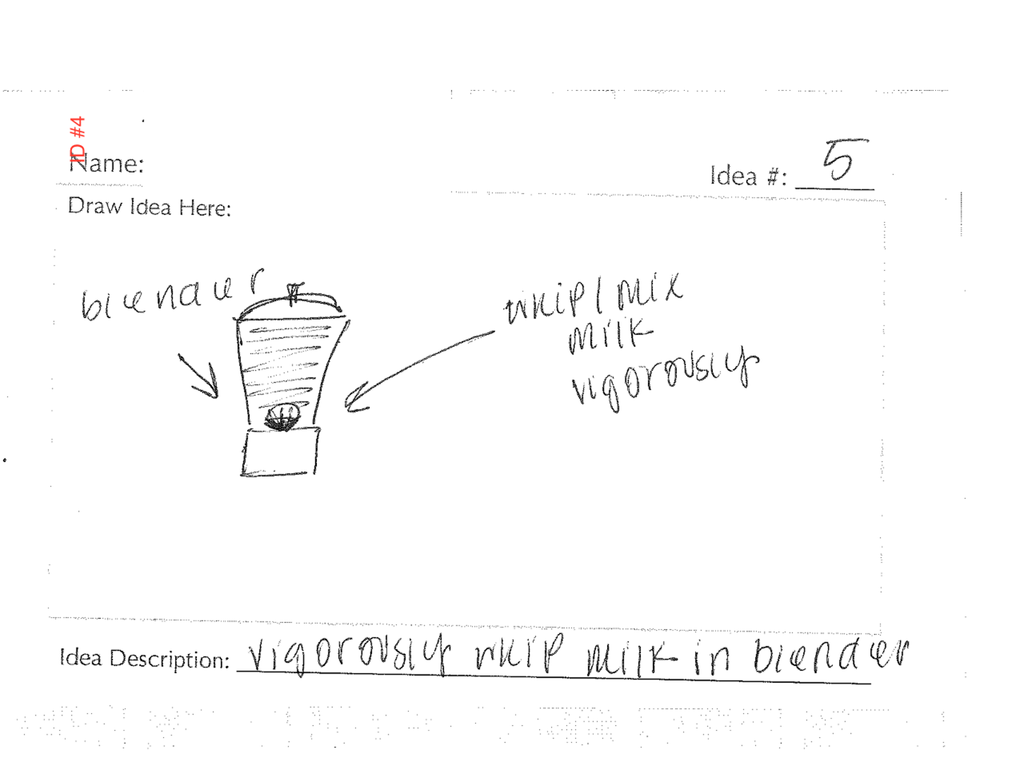 ID #4
Name:
Idea #: 5
Draw Idea Here:
blender
whip/mix
milk
vigorously
Idea Description: vigorously whip milk in blender